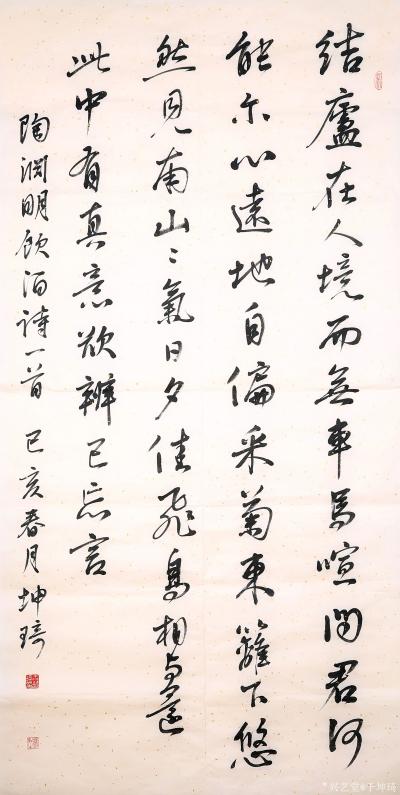 结廬在人境而無車馬喧问君何
能尔心遠地自偏采菊東籬下悠
然見南山〻氣日夕佳飛鳥相与還
此中有真意欲辨已忘言
陶渊明饮酒詩一首 己亥春月坤琦
兴艺堂@于坤琦